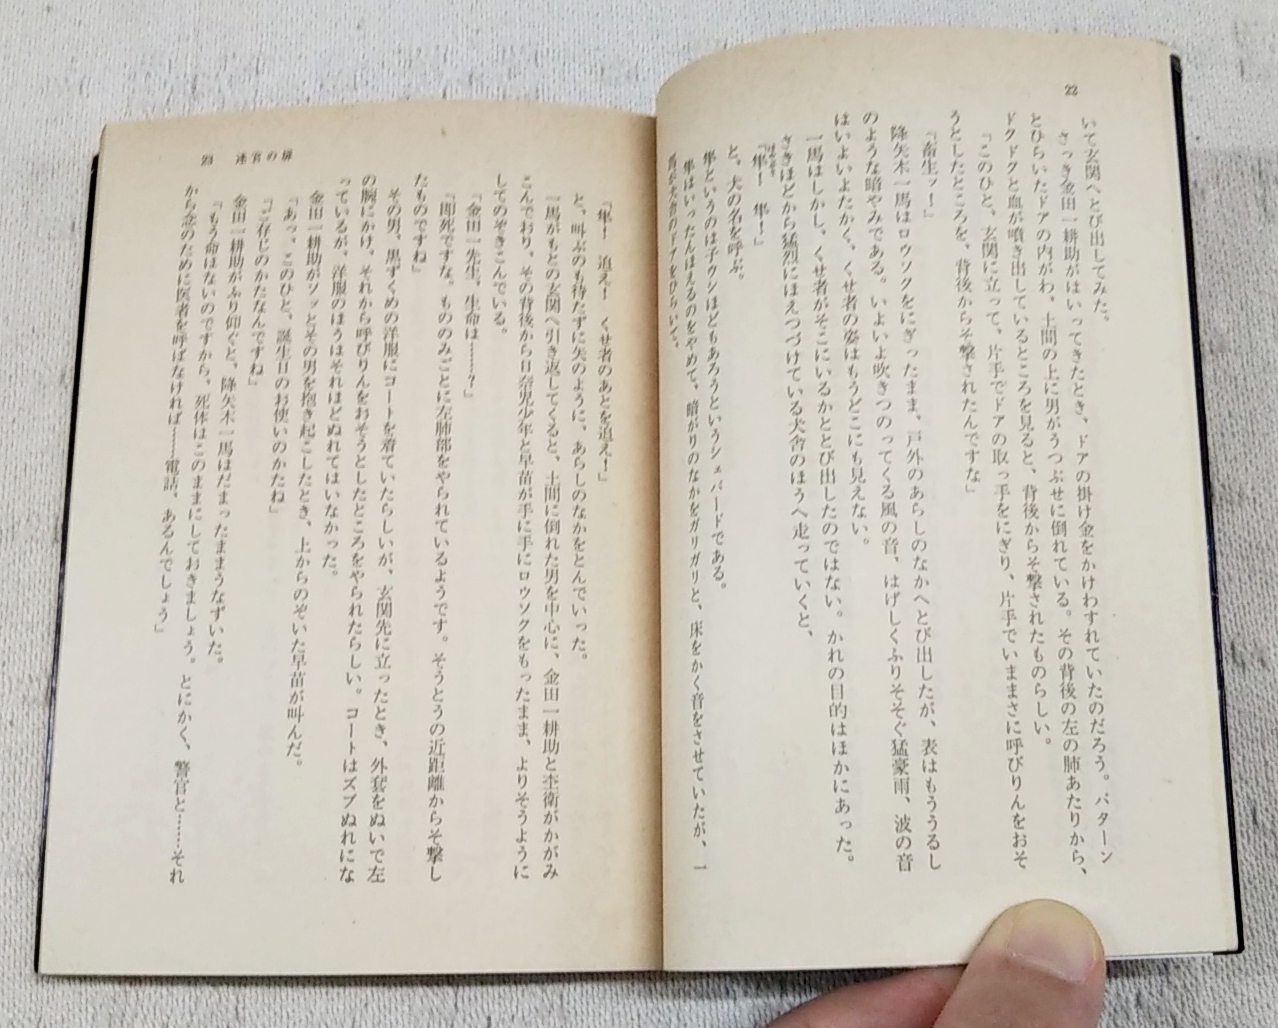 22
いて玄関へとび出してみた。
さっき金田一耕助がはいってきたとき、ドアの掛け金をかけわすれていたのだろう。バターン
とひらいたドアの内がわ、土間の上に男がうつぶせに倒れている。その背後の左の肺あたりから、
ドクドクと血が噴き出しているところを見ると、背後からそ撃されたものらしい。
「このひと、玄関に立って、片手でドアの取っ手をにぎり、片手でいままさに呼びりんをおそ
うとしたところを、背後からそ撃されたんですな」
「畜生ッ！」
降矢木一馬はロウソクをにぎったまま、戸外のあらしのなかへとび出したが、表はもううるし
のような暗やみである。いよいよ吹きつのってくる風の音、はげしくふりそそぐ猛豪雨、波の音
はいよいよたかく、くせ者の姿はもうどこにも見えない。
一馬はしかし、くせ者がそこにいるかととび出したのではない。かれの目的はほかにあった。
さきほどから猛烈にほえつづけている犬舎のほうへ走っていくと、
「隼！　隼！」
と、犬の名を呼ぶ。
隼というのは子ウシほどもあろうというシェパードである。
隼はいったんほえるのをやめて、暗がりのなかをガリガリと、床をかく音をさせていたが、一
馬が犬舎のドアをひらいて、
「隼！　追え！　くせ者のあとを追え！」
と、叫ぶのも待たずに矢のように、あらしのなかをとんでいった。
一馬がもとの玄関へ引き返してくると、土間に倒れた男を中心に、金田一耕助と杢衛がかがみ
こんでおり、その背後から日奈児少年と早苗が手に手にロウソクをもったまま、よりそうように
してのぞきこんでいる。
「金田一先生、生命は……？」
「即死ですな。もののみごとに左肺部をやられているようです。そうとうの近距離からそ撃し
たものですね」
その男、黒ずくめの洋服にコートを着ていたらしいが、玄関先に立ったとき、外套をぬいで左
の腕にかけ、それから呼びりんをおそうとしたところをやられたらしい。コートはズブぬれにな
っているが、洋服のほうはそれほどぬれてはいなかった。
金田一耕助がソッとその男を抱き起こしたとき、上からのぞいた早苗が叫んだ。
「あっ、このひと、誕生日のお使いのかたね」
「ご存じのかたなんですね」
金田一耕助がふり仰ぐと、降矢木一馬はだまったままうなずいた。
「もう命はないのですから、死体はこのままにしておきましょう。とにかく、警官と……それ
から念のために医者を呼ばなければ……電話、あるんでしょう」
23　迷宮の扉